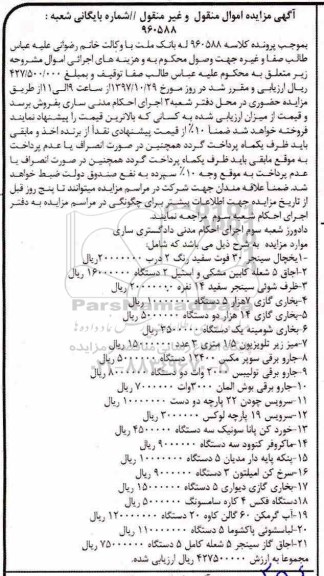 آگهی مزایده اموال منقول و غیر منقول //شماره بایگانی شعبه :
۹۶۰۵۸۸
بموجب پرونده کلاسه ۹۶۰۵۸۸ له بانک ملت با وکالت خانم رضوانی علیه عباس
طالب صفا و غیره جهت وصول محکوم به و هزینه های اجرائی اموال مشروحه
زیر متعلق به محکوم علیه عباس طالب صفا توقیف و بمبلغ ۴۲۷/۵۰۰/۰۰۰
ریال ارزیابی و مقرر شد در روز مورخ ۱۳۹۷/۱۰/۲۹از ساعت ۹الی۱۱از طریق
مزایده حضوری در محل دفتر شعبه۳ اجرای احکام مدنی ساری بفروش برسد
و قیمت از میزان ارزیابی شده به کسانی که بالاترین قیمت را پیشنهاد نمایند
فروخته خواهد شد ضمناً ۱۰٪ از قیمت پیشنهادی نقداً از برنده اخذ و مابقی
باید ظرف یکماه پرداخت گردد همچنین در صورت انصراف یا عدم پرداخت
به موقع مابقی باید ظرف یکماه پرداخت گردد همچنین در صورت انصراف یا
عدم پرداخت به موقع وجه ۱۰٪ سپرده به نفع صندوق دولت ضبط خواهد
شد ضمناً علاقه مندان جهت شرکت در مراسم مزایده میتوانند تا پنج روز قبل
از تاریخ مزایده جهت اطلاعات بیشتر برای چگونگی در مراسم مزایده به دفتر
اجرای احکام شعبه سوم مراجعه نمایند.
دادورز شعبه سوم اجرای احکام مدنی دادگستری ساری
موارد مزایده به شرح ذیل می باشد که شامل:
۱-یخچال سینجر ۳۰ فوت سفید رنگ ۲ درب ۲۰۰۰۰۰۰۰ریال
۲-اجاق ۵ شعله کابین مشکی و استیل ۲ دستگاه ۱۶۰۰۰۰۰۰ ریال
۳-ظرف شوئی سینجر سفید ۱۴ نفره ۲۰۰۰۰۰۰۰ ریال
۴-بخاری گازی ۷هزار ۵ دستگاه ۱۰۰۰۰۰۰۰ ریال
۵-بخاری گازی ۱۴ هزار دو دستگاه ۵۰۰۰۰۰۰ ریال
۶-بخاری شومینه یک دستگاه ۳۵۰۰۰۰۰ ریال
۷-میز زیر تلویزیون ۱/۵ متری ۳ عدد ۱۵۰۰۰۰۰۰ ریال
۸-جارو برقی سوپر مکس ۱۲۴۰۰ دستگاه ۵۰۰۰۰۰۰ ریال
۹-جارو برقی تولیپس ۲۰۰۰ وات دو دستگاه ۸۰۰۰۰۰۰ ریال
۱۰-جارو برقی بوش المان ۳۰۰۰وات ۷۰۰۰۰۰۰ ریال
۱۱-سرویس چودن ۲۲ پارچه دو دست ۱۰۰۰۰۰۰۰ ریال
۱۲-سرویس ۱۹ پارچه لوکس ۳۰۰۰۰۰۰ ریال
۱۳-خورد کن پانا سونیک سه دستگاه ۴۵۰۰۰۰۰ ریال
۱۴-ماکروفر کنوود سه دستگاه ۹۰۰۰۰۰۰ ریال
۱۵-پنکه پایه دار مدیان ۵ دستگاه ۱۰۰۰۰۰۰۰ ریال
۱۶-سرخ کن امیلتون ۳ دستگاه ۹۰۰۰۰۰۰ ریال
۱۷-بخاری گازی دیواری ۵ دستگاه ۱۵۰۰۰۰۰۰ ریال
۱۸دستگاه فکس ۴ کاره سامسونگ ۵۰۰۰۰۰۰ ریال
۱۹-آب گرمکن ۶۰ گالن کاوه ۲۰ دستگاه ۱۲۰۰۰۰۰۰۰ ریال
۲۰-لباسشوئی پاکشوما ۵ دستگاه ۱۱۰۰۰۰۰۰ ریال
۲۱-اجاق گاز سینجر ۵ شعله کامل ۵ دستگاه ۷۵۰۰۰۰۰۰ ریال
مجموعا به ارزش ۴۲۷۵۰۰۰۰۰ ریال ارزیابی شده.